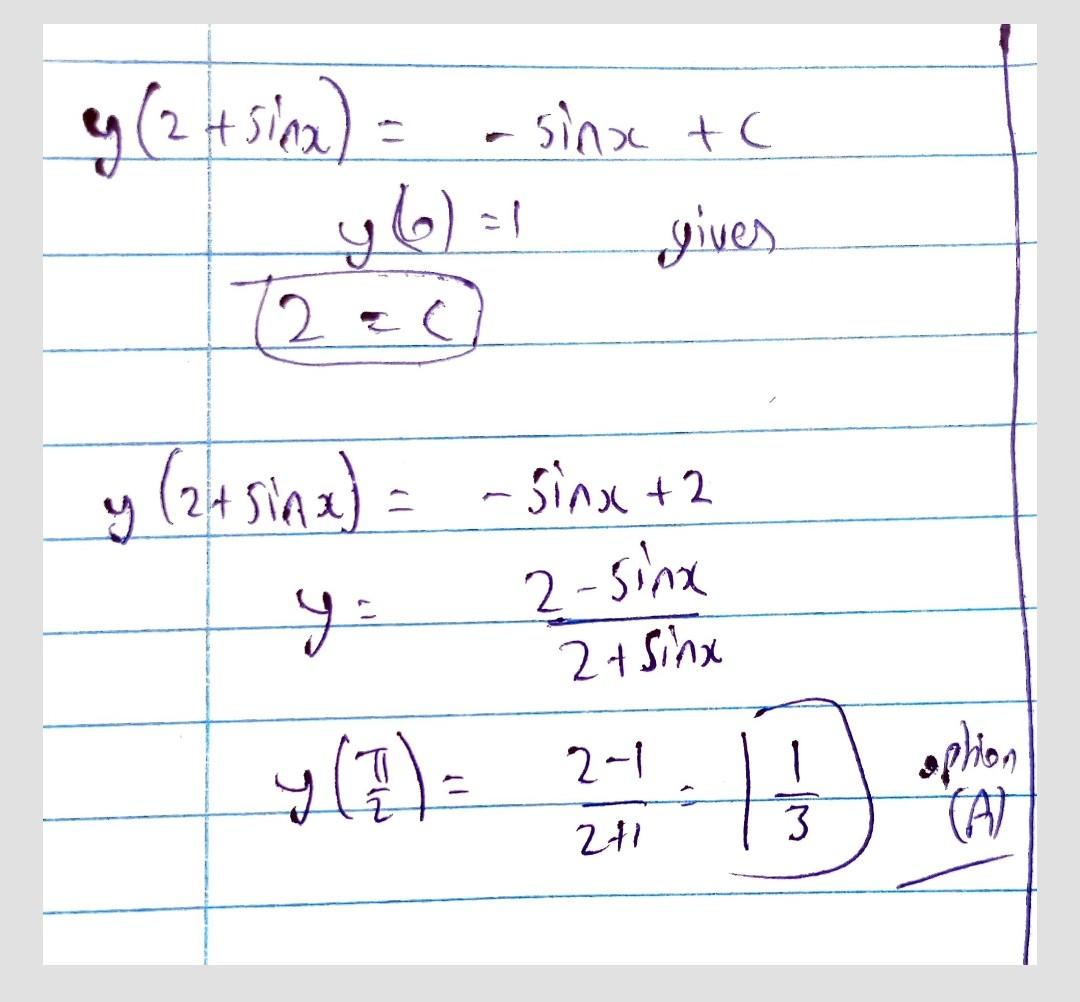 y(2+sinx) = - sinx + C
y(0) = 1 gives
2 = C
y(2+sinx) = - sinx + 2
y = 2 - sinx / 2 + sinx
y(π/2) = 2-1 / 2+1 = 1/3 option (A)